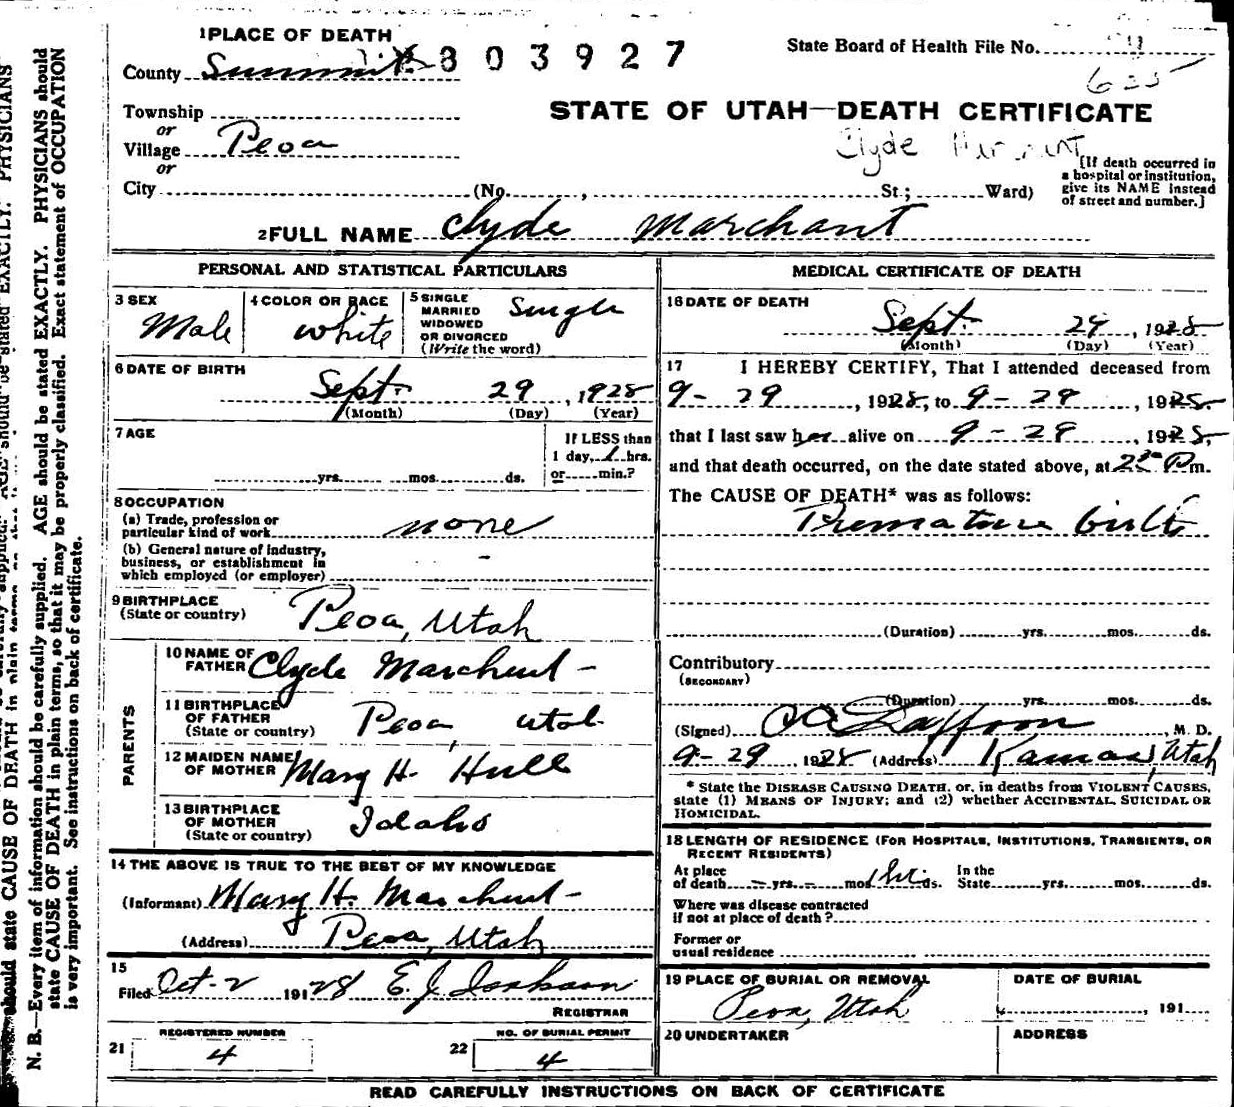 1 PLACE OF DEATH
303927
State Board of Health File No.
County Summit
625
Township
STATE OF UTAH—DEATH CERTIFICATE
or
Village Peoa
Clyde
or
City (No. , St.; Ward)
[If death occurred in
a hospital or institution,
give its NAME instead
of street and number.]
2 FULL NAME Clyde Marchant
PERSONAL AND STATISTICAL PARTICULARS
3 SEX
Male
4 COLOR OR RACE
White
5 SINGLE
MARRIED
WIDOWED
OR DIVORCED
(Write the word)
Single
6 DATE OF BIRTH
Sept. 29, 1928
(Month) (Day) (Year)
7 AGE
yrs. mos. ds.
If LESS than
1 day, 1 hrs.
or min.?
8 OCCUPATION
(a) Trade, profession or
particular kind of work none
(b) General nature of industry,
business, or establishment in
which employed (or employer) -
9 BIRTHPLACE
(State or country) Peoa, Utah
PARENTS
10 NAME OF
FATHER Clyde Marchant
11 BIRTHPLACE
OF FATHER
(State or country) Peoa, Utah
12 MAIDEN NAME
OF MOTHER Mary H. Hull
13 BIRTHPLACE
OF MOTHER
(State or country) Idaho
14 THE ABOVE IS TRUE TO THE BEST OF MY KNOWLEDGE
(Informant) Mary H. Marchant
(Address) Peoa, Utah
15
Filed Oct-2 191 28 E. J.
REGISTRAR
REGISTERED NUMBER
21 4
NO. OF BURIAL PERMIT
22 4
MEDICAL CERTIFICATE OF DEATH
16 DATE OF DEATH
Sept. 29, 1928
(Month) (Day) (Year)
17 I HEREBY CERTIFY, That I attended deceased from
9-29, 1928, to 9-29, 1928.
that I last saw alive on 9-29, 1928,
and that death occurred, on the date stated above, at P m.
The CAUSE OF DEATH* was as follows:
Premature birth
(Duration) yrs. mos. ds.
Contributory
(SECONDARY)
(Duration) yrs. mos. ds.
(Signed) , M. D.
9-29 1928 (Address) Kamas, Utah
* State the DISEASE CAUSING DEATH, or, in deaths from VIOLENT CAUSES,
state (1) MEANS OF INJURY; and (2) whether ACCIDENTAL, SUICIDAL OR
HOMICIDAL.
18 LENGTH OF RESIDENCE (FOR HOSPITALS, INSTITUTIONS, TRANSIENTS, OR
RECENT RESIDENTS)
At place
of death - yrs. - mos. 1 hr. ds.
In the
State yrs. mos. ds.
Where was disease contracted
if not at place of death?
Former or
usual residence
19 PLACE OF BURIAL OR REMOVAL
Peoa, Utah
DATE OF BURIAL
, 191
20 UNDERTAKER
ADDRESS
READ CAREFULLY INSTRUCTIONS ON BACK OF CERTIFICATE
N. B.—Every item of information should be carefully supplied. AGE should be stated EXACTLY. PHYSICIANS should
state CAUSE OF DEATH in plain terms, so that it may be properly classified. Exact statement of OCCUPATION
is very important. See instructions on back of certificate.